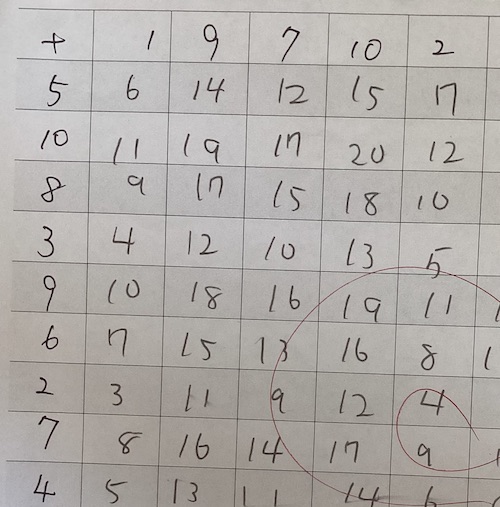 + 1 9 7 10 2
5 6 14 12 15 7
10 11 19 17 20 12
8 9 17 15 18 10
3 4 12 10 13 5
9 10 18 16 19 11
6 7 15 13 16 8
2 3 11 9 12 4
7 8 16 14 17 9
4 5 13 11 14 6